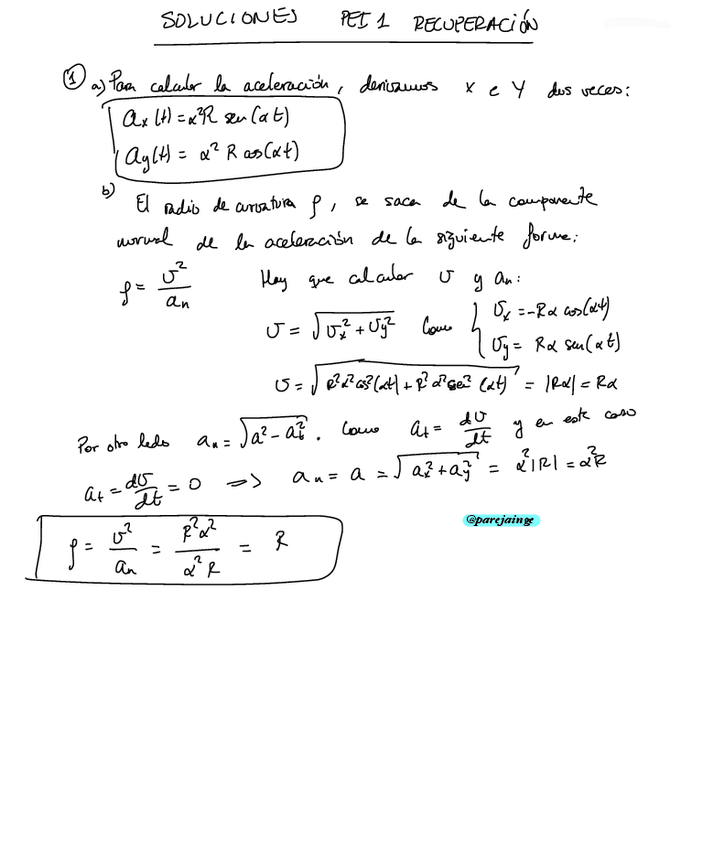 SOLUCIONES PEI 1 RECUPERACIÓN
① a) Para calcular la aceleración, derivamos x e y dos veces:
ax(t) = α²R sen(αt)
ay(t) = α² R cos(αt)
b) El radio de curvatura ρ, se saca de la componente
normal de la aceleración de la siguiente forma:
ρ = v²/an Hay que calcular v y an:
v = √(vx² + vy²) Como { vx = -Rα cos(αt)
vy = Rα sen(αt)
v = √(R²α²cos²(αt) + R²α²sen²(αt)) = |Rα| = Rα
Por otro lado an = √(a² - at²). Como at = dv/dt y en este caso
at = dv/dt = 0 => an = a = √(ax² + ay²) = α²|R| = α²R
@parejainge
ρ = v²/an = R²α²/α²R = R